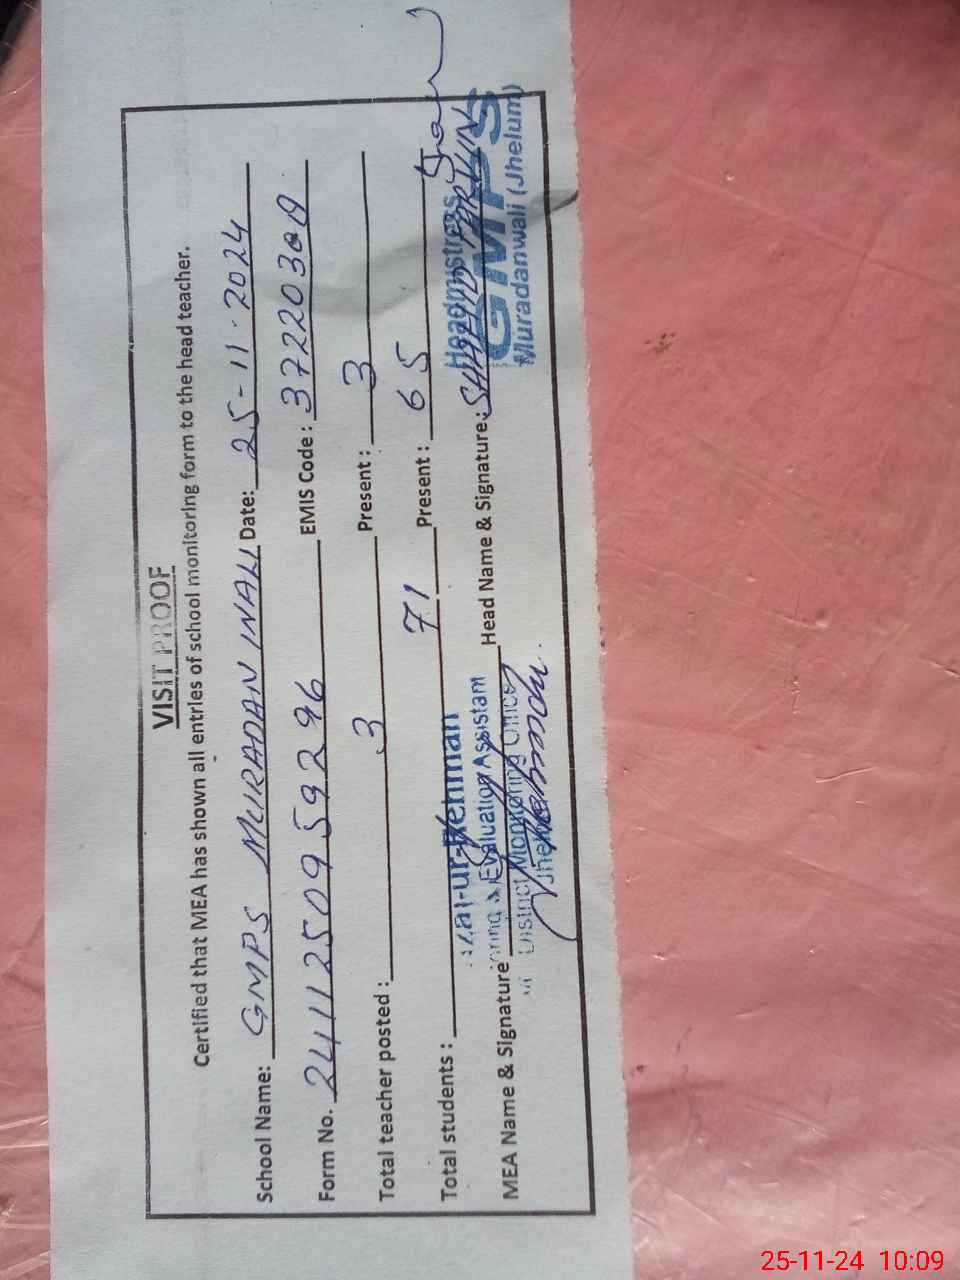 VISIT PROOF
Certified that MEA has shown all entries of school monitoring form to the head teacher.
School Name: GMPS MURADAN WALI Date: 25-11-2024
Form No. 241125095 9296 EMIS Code: 37220300
Total teacher posted: 3 Present: 3
Total students: 71 Present: 65
-ur-Rehman
Evaluation Assistant
District Monitoring Office
Jhelum
MEA Name & Signature Rehman Head Name & Signature: SHAHEEN PARVIN
Headmistress
GMPS
Muradanwali (Jhelum)
25-11-24 10:09